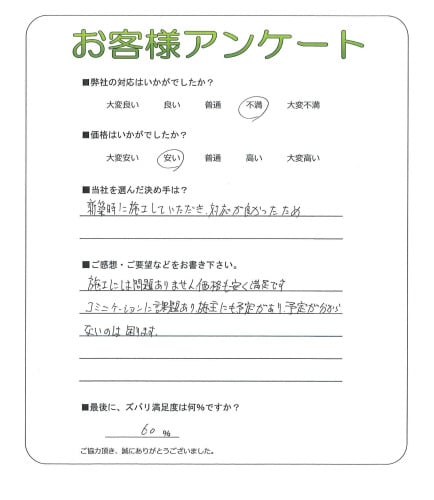 お客様アンケート
■弊社の対応はいかがでしたか？
大変良い 良い 普通 不満 大変不満
■価格はいかがでしたか？
大変安い 安い 普通 高い 大変高い
■当社を選んだ決め手は？
新築時に施工していただき、対応が良かったため
■ご感想・ご要望などをお書き下さい。
施工には問題ありません価格も安く満足です
コミニケーションに課題あり、施主にも予定があり、予定が分から
ないのは困ります。
■最後に、ズバリ満足度は何％ですか？
60 ％
ご協力頂き、誠にありがとうございました。